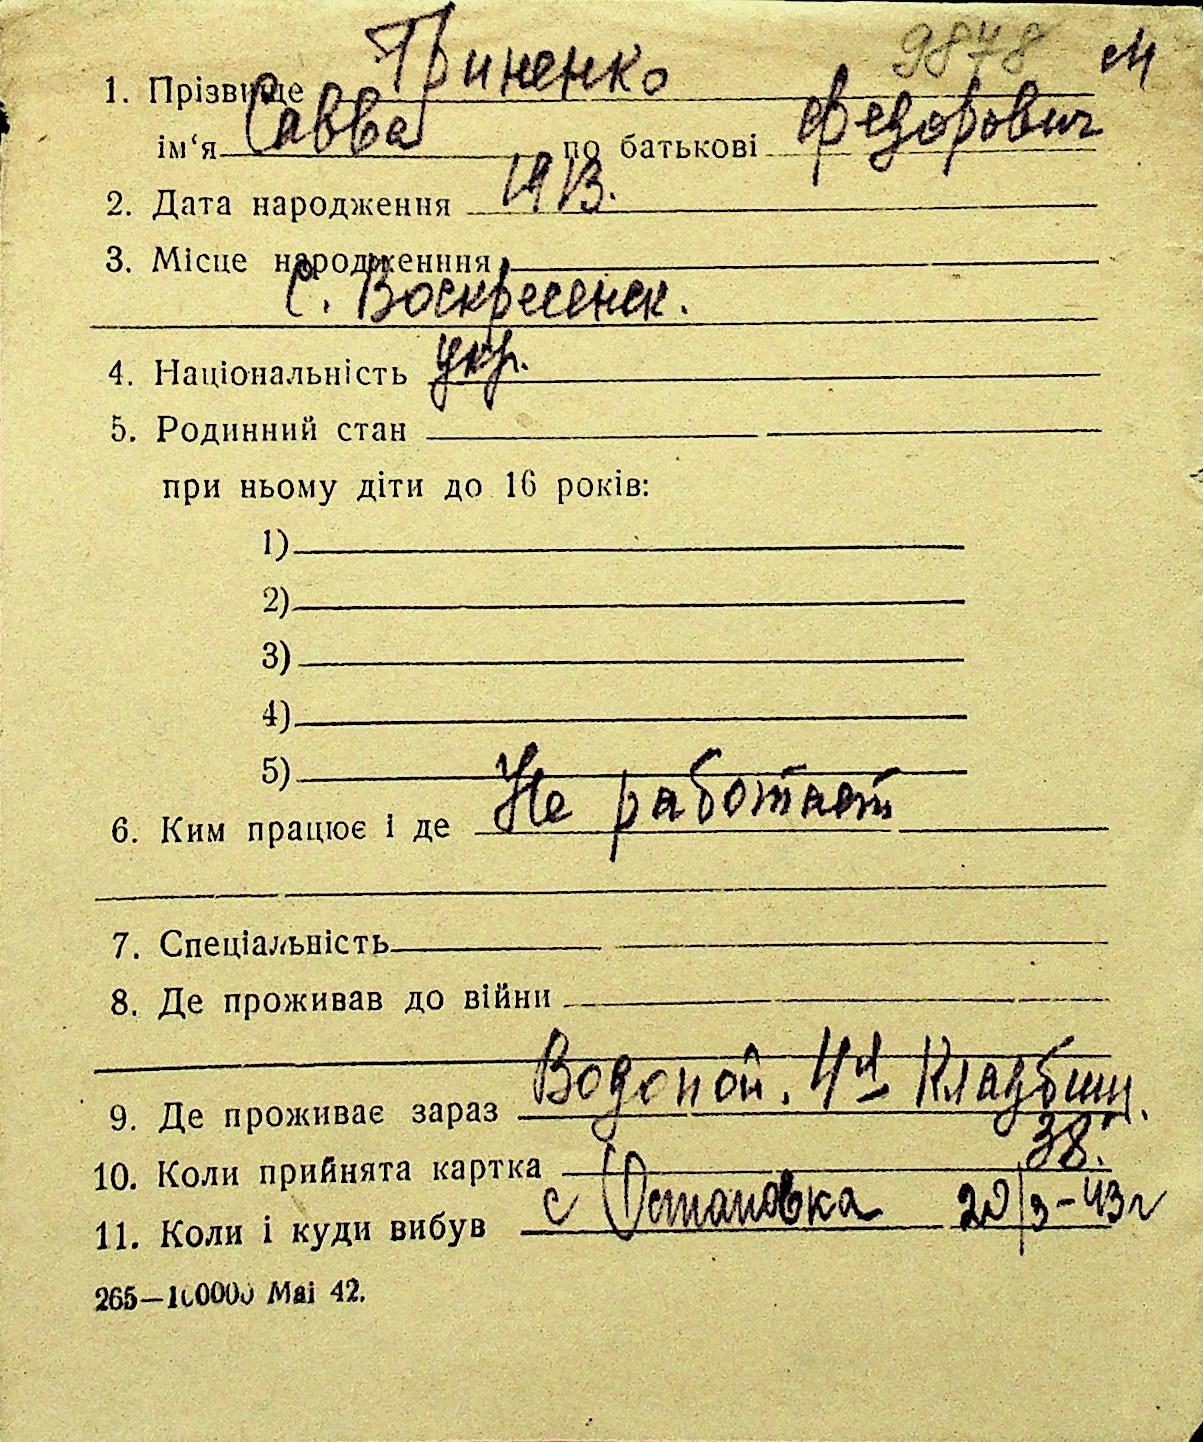 9878 М
1. Прізвище Гриненко
ім‘я Савва по батькові Федорович
2. Дата народження 1913.
3. Місце народженння
С. Воскресенск.
4. Національність укр.
5. Родинний стан
при ньому діти до 16 років:
1)
2)
3)
4)
5)
6. Ким працює і де Не работает
7. Спеціальність
8. Де проживав до війни
9. Де проживає зараз Водопой. 4я Кладбищ.
38.
10. Коли прийнята картка
11. Коли і куди вибув с Остановка 20/3-43г
265—100000 Mai 42.